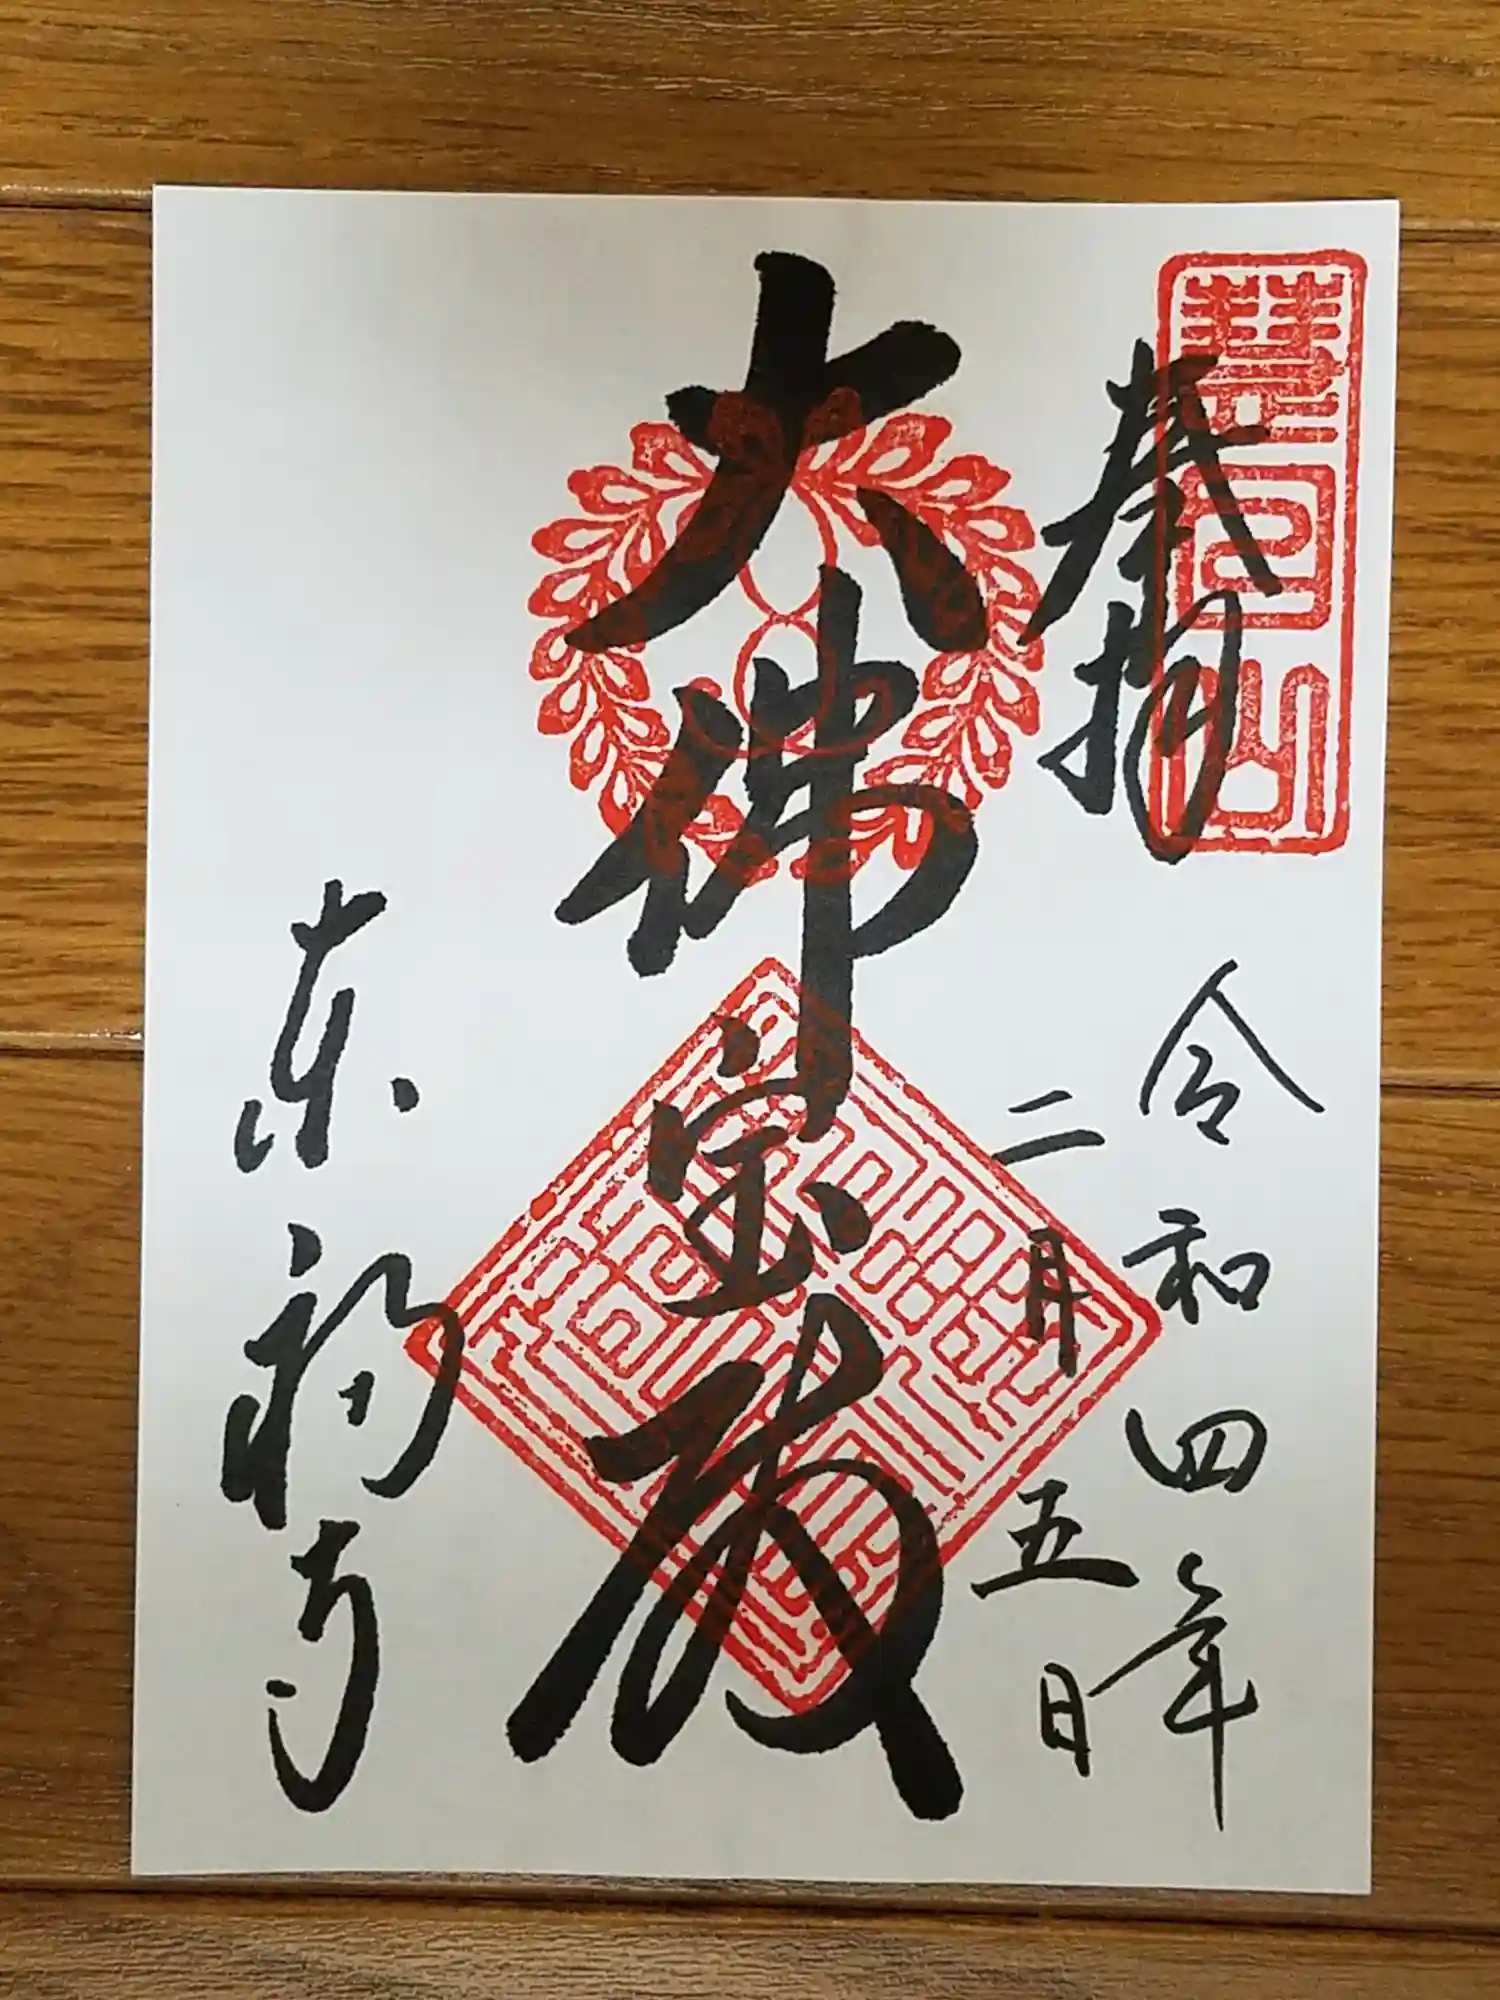 慧日山
奉拝
令和四年
二月五日
大佛宝殿
東福寺